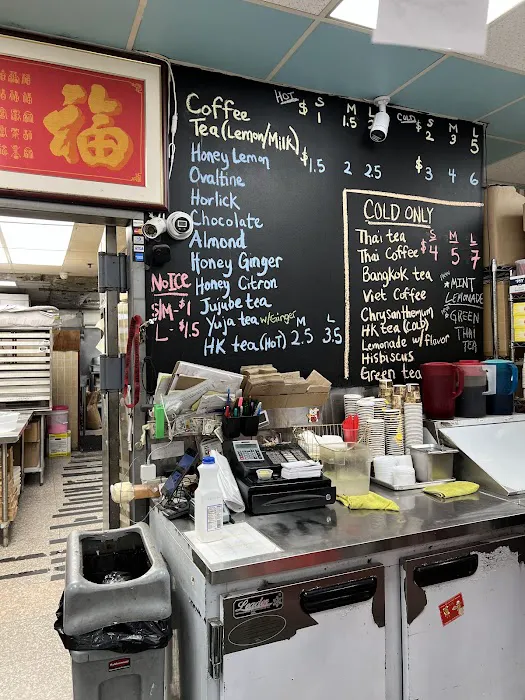 福
HOT S M L
$ 1 1.5 2
COLD S M L
$ 2 3 5
Coffee
Tea (Lemon/Milk)
Honey Lemon $1.5 2 2.5 $3 4 6
Ovaltine
Horlick
Chocolate
Almond
Honey Ginger
Honey Citron
Jujube tea
Yuja tea w/Ginger
HK tea (HOT) M 2.5 L 3.5
NO ICE
S/M-$1
L-$1.5
COLD ONLY
S M L
$4 5 7
Thai tea
Thai Coffee
Bangkok tea
Viet Coffee
Chrysanthemum
HK tea (COLD)
Lemonade w/ flavor
Hisbiscus
Green tea
*MINT
LEMONADE
*GREEN
THAI
TEA
Leader